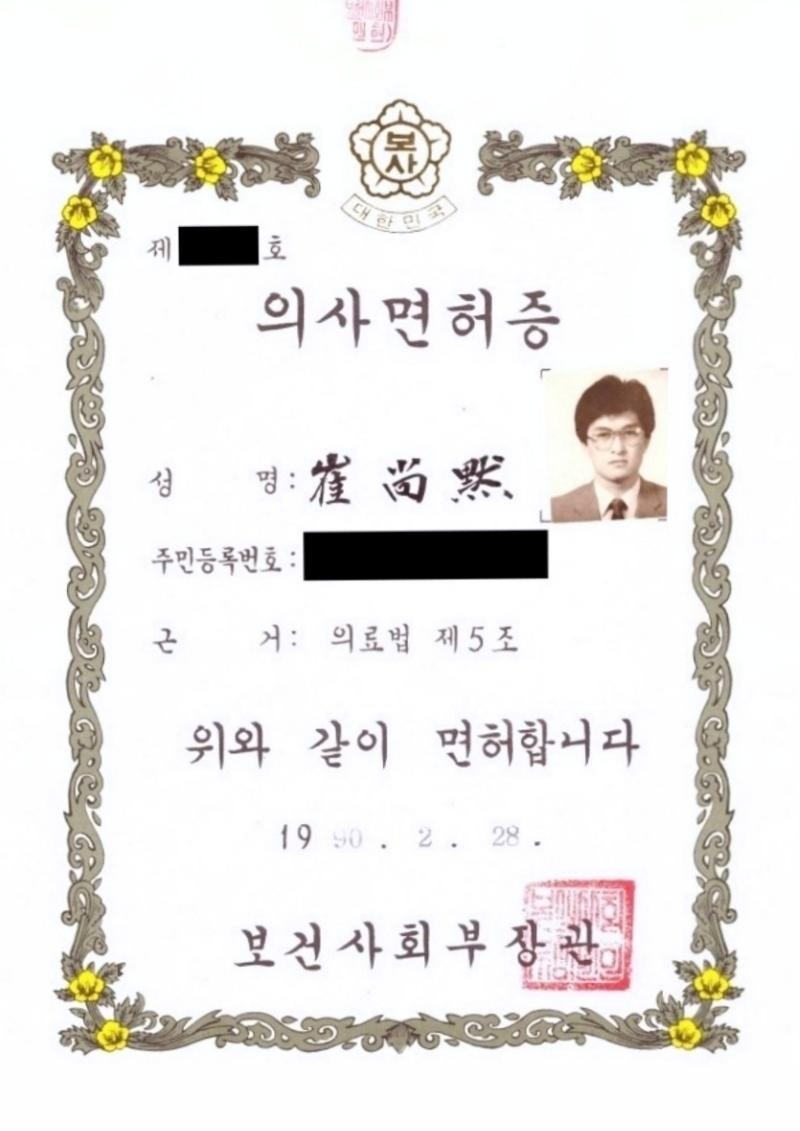 보사
대한민국
제 호
의사면허증
성 명: 崔尚默
주민등록번호:
근 거: 의료법 제5조
위와 같이 면허합니다
1990. 2. 28.
보건사회부장관